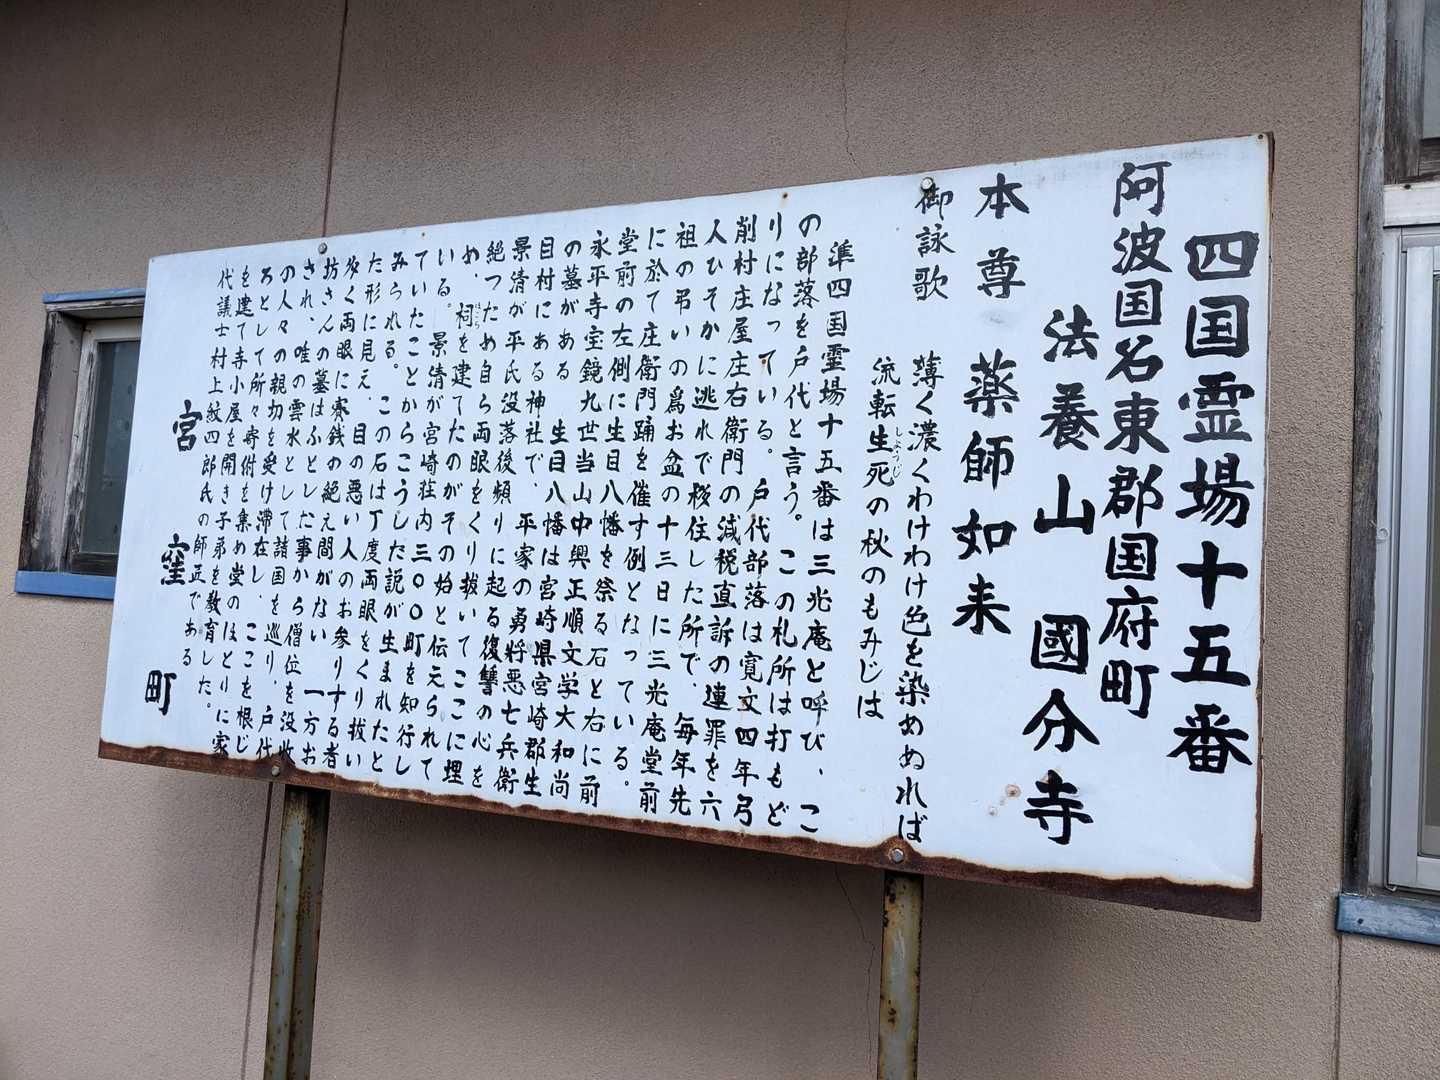 四国霊場十五番
阿波国名東郡国府町
法養山 國分寺
本尊 薬師如来
御詠歌 薄く濃くわけわけ色を染めぬれば
流転生死の秋のもみじは
しようじ
準四国霊場十五番は三光庵と呼び、こ
の部落を戸代と言う。この札所は打もど
りになっている。戸代部落は寛文四年弓
削村庄屋庄右衛門の減税直訴の連罪を六
人ひそかに逃れで移住した所で、毎年先
祖の弔いの爲お盆の十三日に三光庵堂前
に於て庄衛門踊を催す例となっている。
堂前の左側に生目八幡を祭る石と右に前
永平寺宝鏡九世当山中興正順文学大和尚
の墓がある 生目八幡は宮崎県宮崎郡生
目村にある神社で、平家の勇将悪七兵衛
景清が平氏没落後頻りに起る復讐の心を
絶つため自ら両眼をくり抜いてここに埋
め、祠を建てたのがその始と伝えられて
ほこら
いる。景清が宮崎荘内三〇〇町を知行し
ていたことからこうした説が生まれたと
みられる。この石は丁度両眼をくり抜い
た形に見え、目の悪い人のお参りする者
多く両眼に賽銭の絶え間がない 一方お
坊さんの墓はふとした事から僧位を没収
され、唯の雲水として諸国を巡り、戸代
の人々の親切を受け滞在し、ここを根じ
ろとして所々寄附を集め堂のほとりに家
を建て寺小屋を開き子弟を教育した。
代議士村上紋四郎氏の師匠である
宮窪町